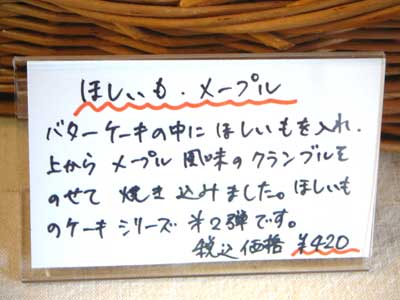 ほしいも・メープル
バターケーキの中に ほしいもを入れ、
上から メープル 風味の クランブルを
のせて 焼き込みました。ほしいも
のケーキ シリーズ 㐧2弾です。
税込価格 ¥420